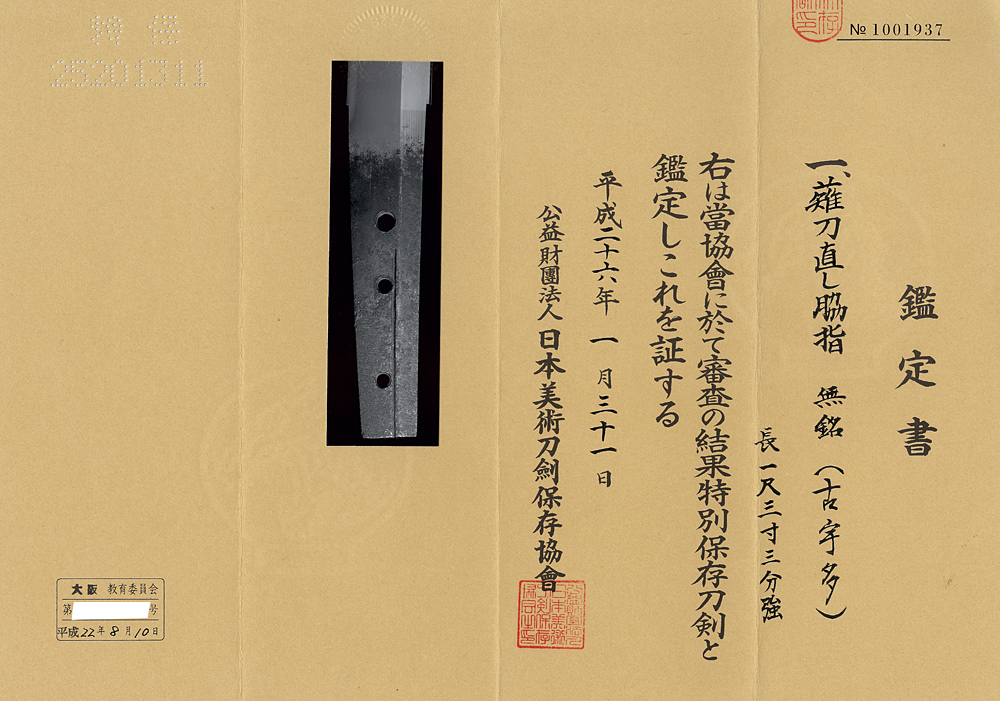 № 1001937
鑑定書
一、薙刀直し脇指 無銘(古宇多)
長一尺三寸三分強
右は當協會に於て審査の結果特別保存刀剣と
鑑定しこれを証する
平成二十六年 一月三十一日
公益財團法人 日本美術刀劍保存協會
特保
25201311
大阪 教育委員会
第 号
平成22年8月10日